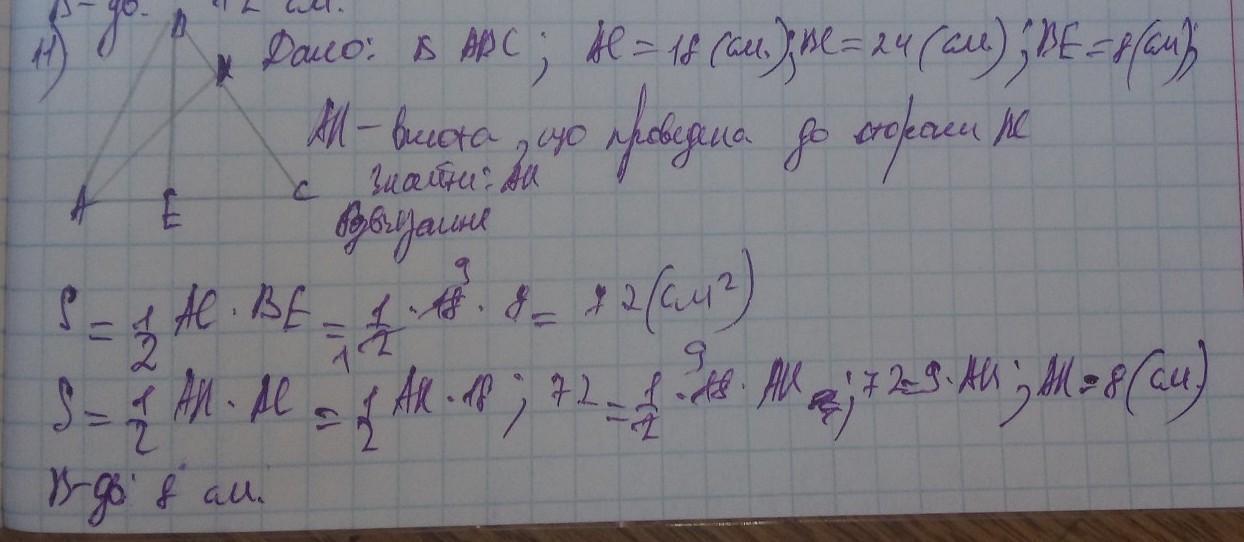 В-дь. 12 см.
11) Дано: Δ ABC; AC = 18 (см.); BC = 24 (см.); BE = 8 (см);
B K
AK – висота, що проведена до сторони AC
Знайти: AK
A E C
Розв'язання
S = 1/2 AC · BE = 1/2 · 18 · 8 = 72 (см²)
9
1
S = 1/2 AK · AC = 1/2 AK · 18; 72 = 1/2 · 18 · AK; 72 = 9 · AK; AK = 8 (см.)
9
В-дь: 8 см.